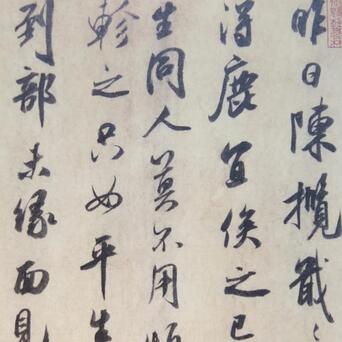 昨日陳攬戢
得鹿宜俟之已
生同人莫不用
軫之只如平生
到部未緣面見